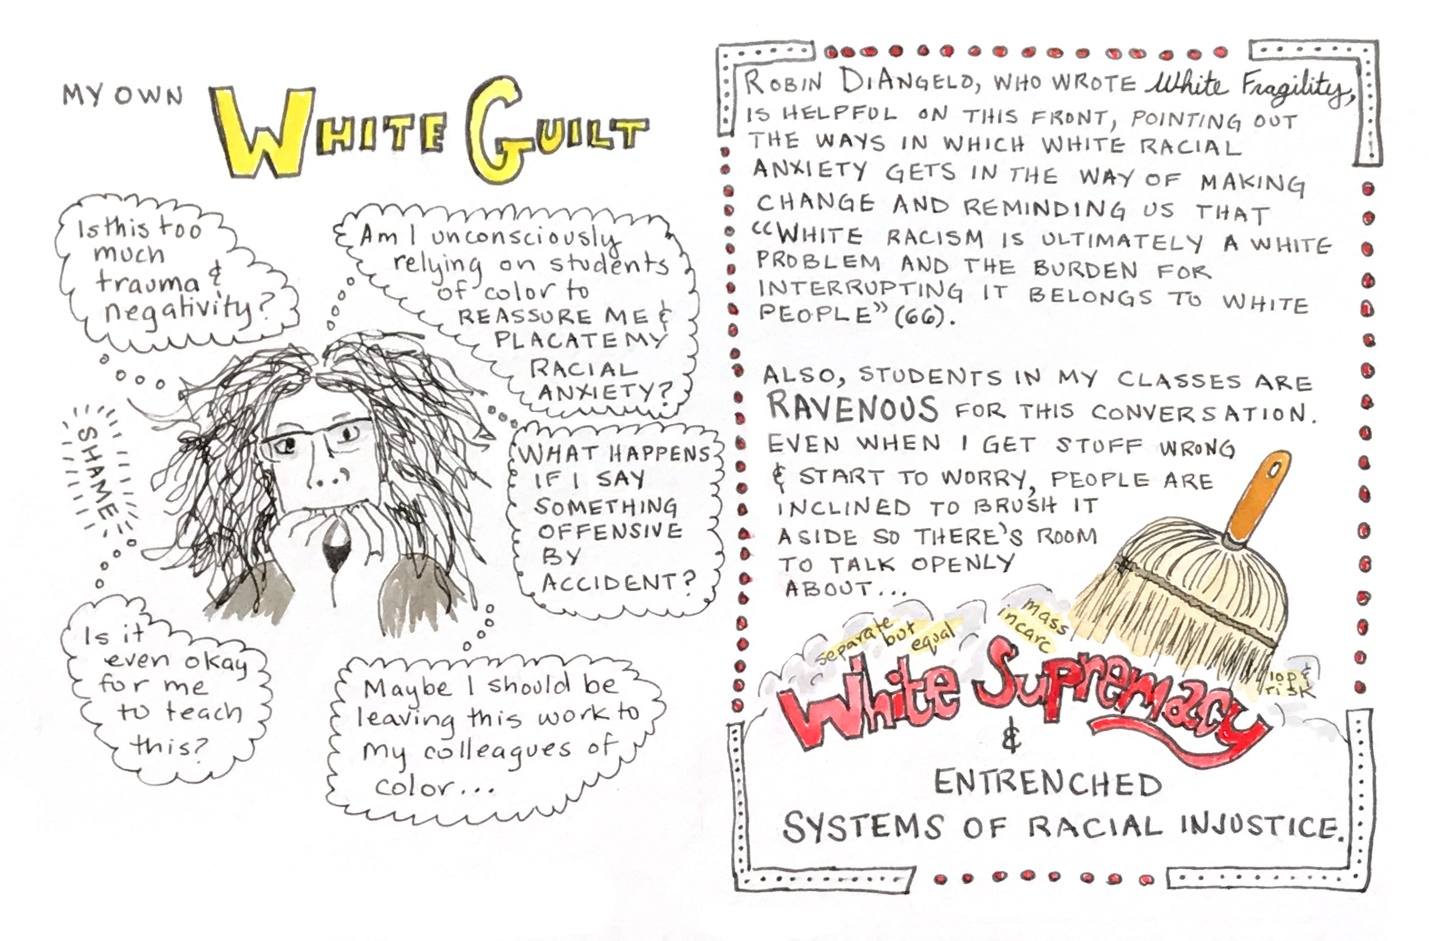 MY OWN
WHITE GUILT
Is this too
much
trauma &
negativity?
Am I unconsciously
relying on students
of color to
REASSURE ME &
PLACATE MY
RACIAL
ANXIETY?
SHAME
WHAT HAPPENS
IF I SAY
SOMETHING
OFFENSIVE
BY
ACCIDENT?
Is it
even okay
for me
to teach
this?
Maybe I should be
leaving this work to
my colleagues of
color...
ROBIN DIANGELO, WHO WROTE White Fragility,
IS HELPFUL ON THIS FRONT, POINTING OUT
THE WAYS IN WHICH WHITE RACIAL
ANXIETY GETS IN THE WAY OF MAKING
CHANGE AND REMINDING US THAT
“WHITE RACISM IS ULTIMATELY A WHITE
PROBLEM AND THE BURDEN FOR
INTERRUPTING IT BELONGS TO WHITE
PEOPLE” (66).
ALSO, STUDENTS IN MY CLASSES ARE
RAVENOUS FOR THIS CONVERSATION.
EVEN WHEN I GET STUFF WRONG
& START TO WORRY, PEOPLE ARE
INCLINED TO BRUSH IT
ASIDE SO THERE'S ROOM
TO TALK OPENLY
ABOUT...
separate
but
equal
mass
incarc
White Supremacy
&
ENTRENCHED
SYSTEMS OF RACIAL INJUSTICE.